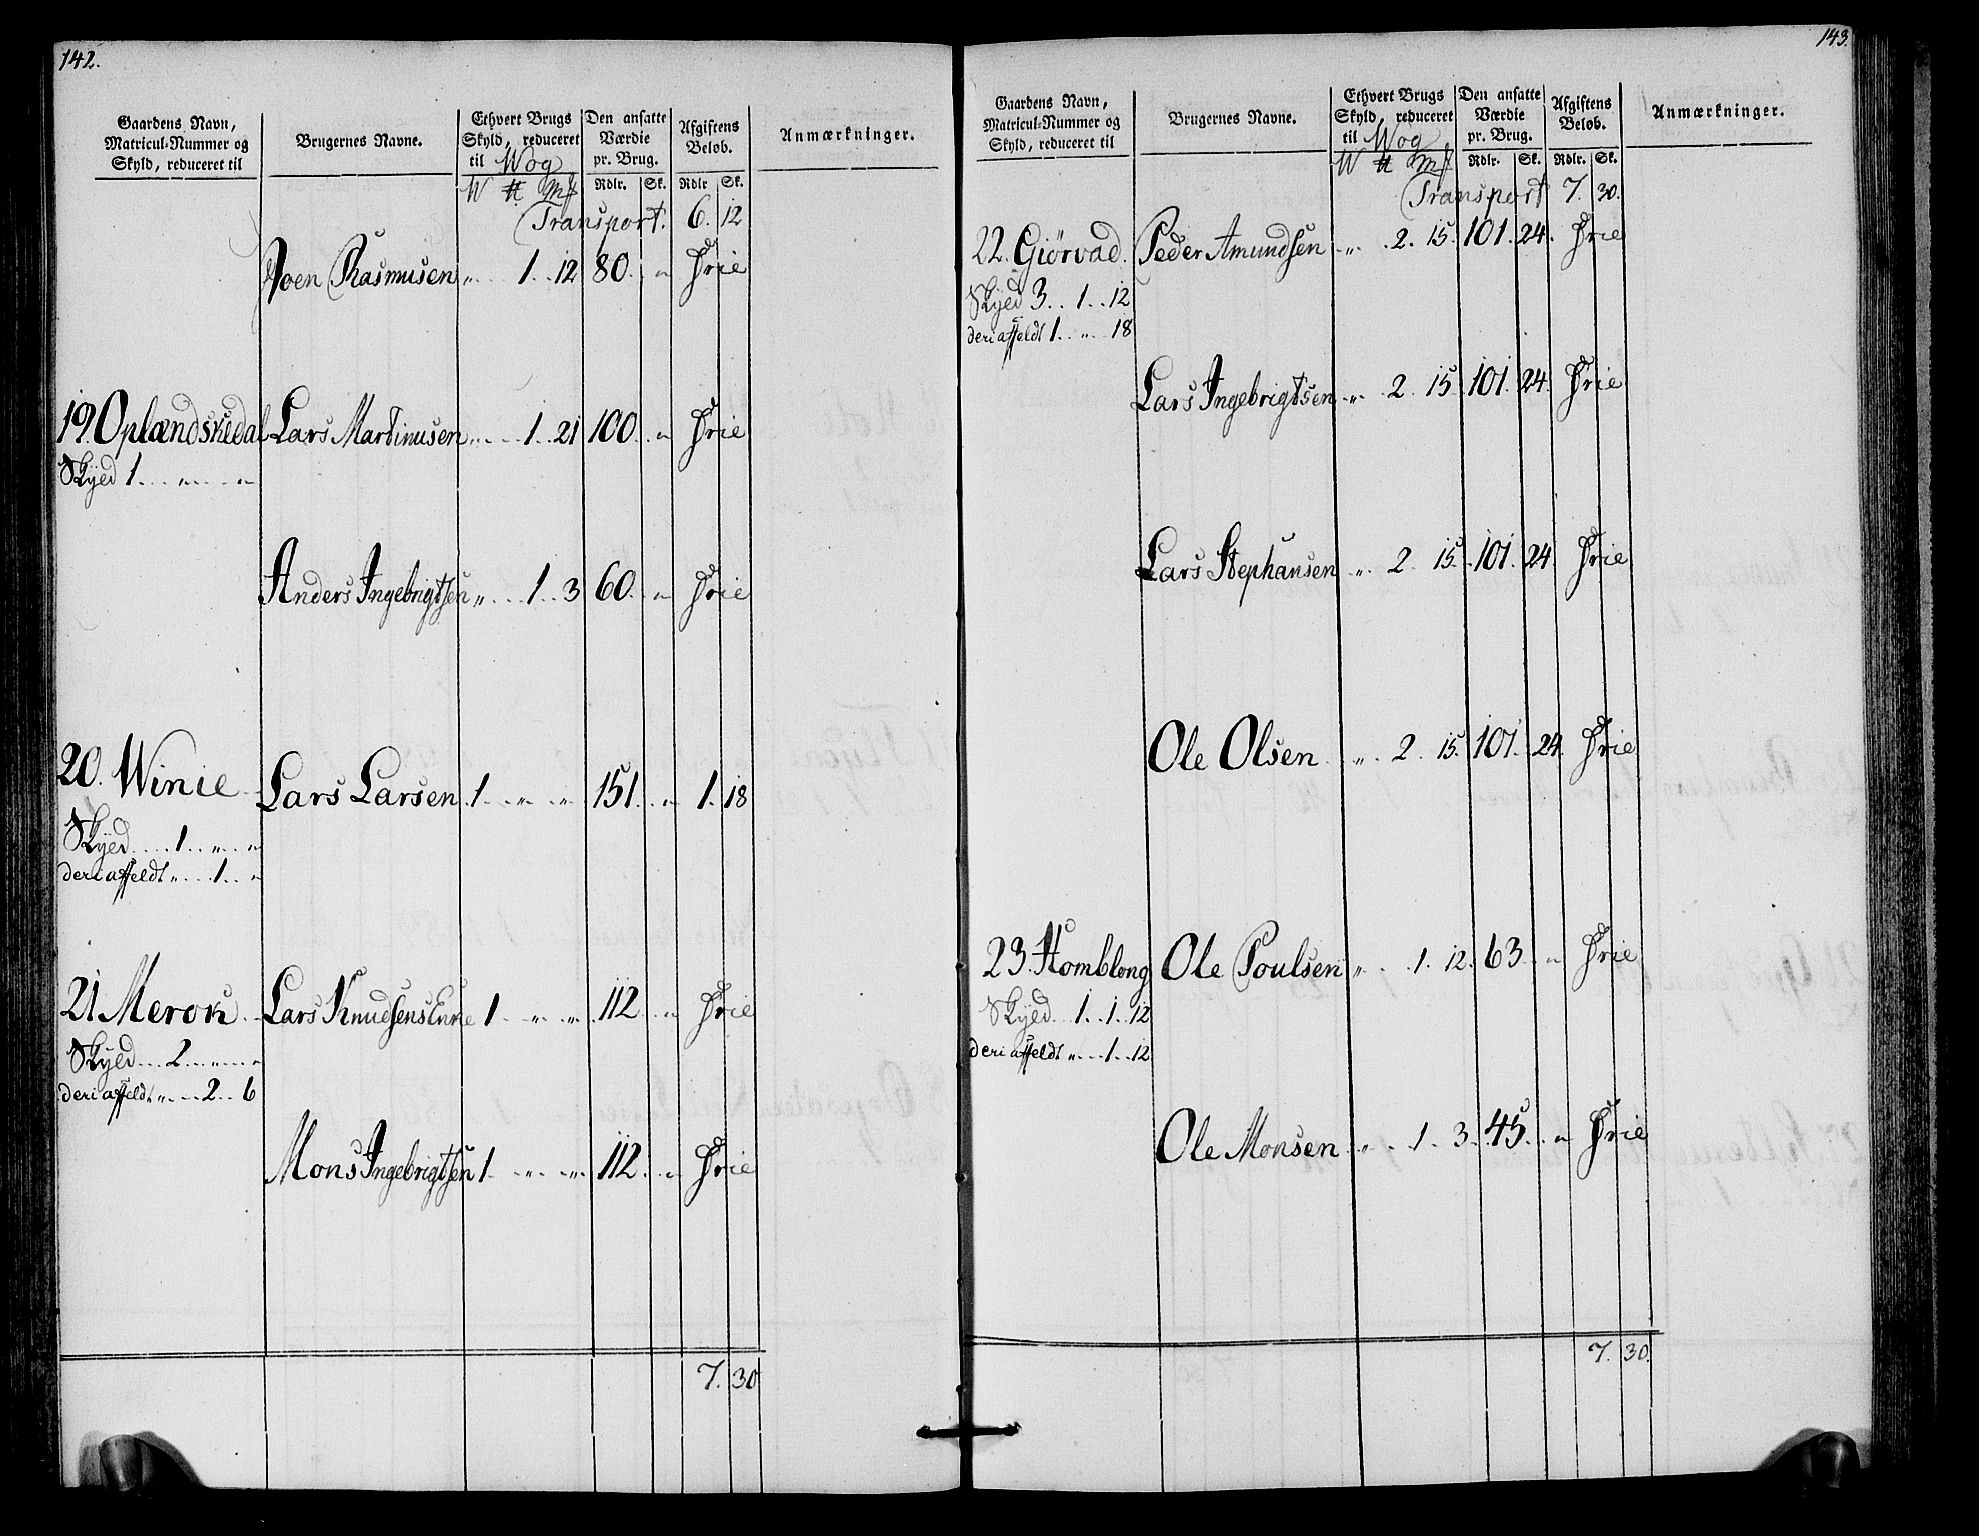 142.
Gaardens Navn, Matricul-Nummer og Skyld, reduceret til
Brugernes Navne.
Ethvert Brugs Skyld, reduceret til Wog
Den ansatte Værdie pr. Brug.
Afgiftens Beløb.
Anmærkninger.
W # Mk Rdlr. Sk. Rdlr Sk.
Transport. 6. 12
Joen Rasmusen „ 1. 12 80. „ Frie
19. Oplændskedal Lars Martinusen „ 1. 21 100. „ Frie
Skyed 1. „ „
Anders Ingebrigtsen „ 1. 3 60. „ Frie
20. Winie Lars Larsen 1. „ „ 151. „ 1. 18
Skyed 1. „ „
deri affeldt „ 1. „
21 Merok Lars Knudsens Enke 1 „ „ 112. „ Frie
Skyed 2. „ „
deri affeldt „ 2. 6
Mons Ingebrigtsen 1. „ „ 112. „ Frie
7. 30
143.
Gaardens Navn, Matricul-Nummer og Skyld, reduceret til
Brugernes Navne.
Ethvert Brugs Skyld, reduceret til Wog
Den ansatte Værdie pr. Brug.
Afgiftens Beløb.
Anmærkninger.
W # Mk Rdlr. Sk. Rdlr. Sk.
Transport 7. 30.
22. Giörvad. Peder Amundsen „ 2. 15. 101. 24. Frie
Skyed 3. 1. 12
deri affeldt 1. „ 18
Lars Ingebrigtsen „ 2. 15. 101. 24. Frie
Lars Stephansen „ 2. 15. 101. 24 Frie
Ole Olsen „ 2. 15. 101. 24. Frie
23. Homblong Ole Poulsen „ 1. 12. 63 „ Frie
Skyed 1. 1. 12
deri affeldt „ 1. 12
Ole Monsen „ 1. 3. 45. „ Frie
7. 30.